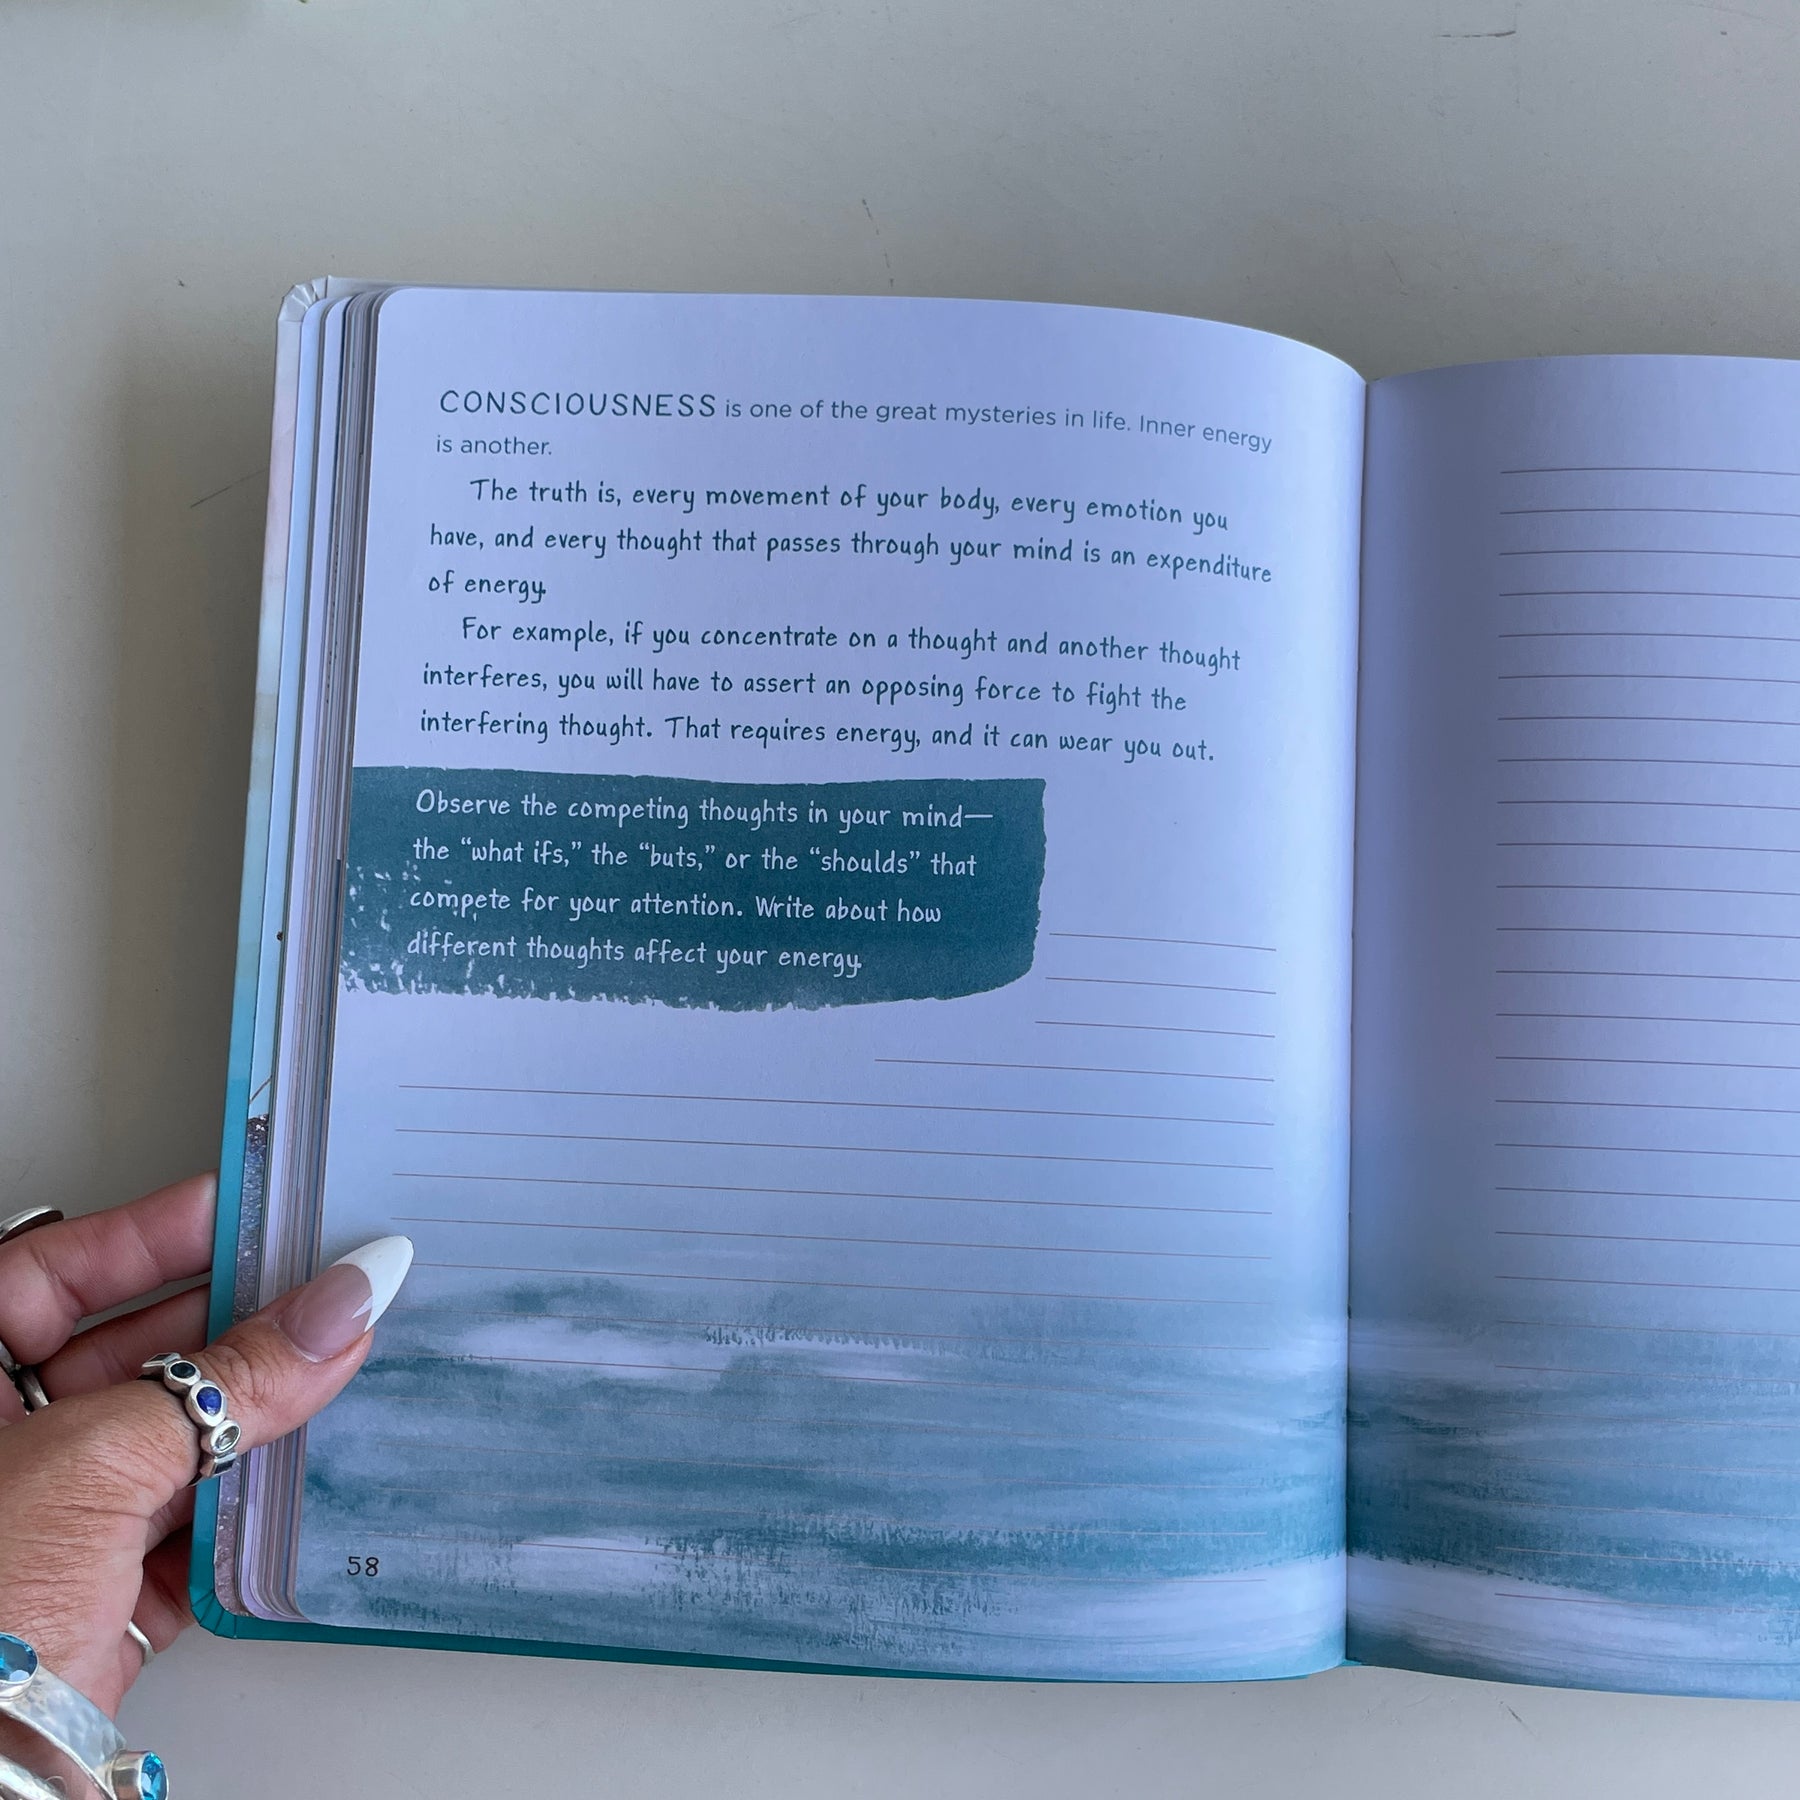 CONSCIOUSNESS is one of the great mysteries in life. Inner energy
is another.
The truth is, every movement of your body, every emotion you
have, and every thought that passes through your mind is an expenditure
of energy.
For example, if you concentrate on a thought and another thought
interferes, you will have to assert an opposing force to fight the
interfering thought. That requires energy, and it can wear you out.
Observe the competing thoughts in your mind—
the “what ifs,” the “buts,” or the “shoulds” that
compete for your attention. Write about how
different thoughts affect your energy.
58